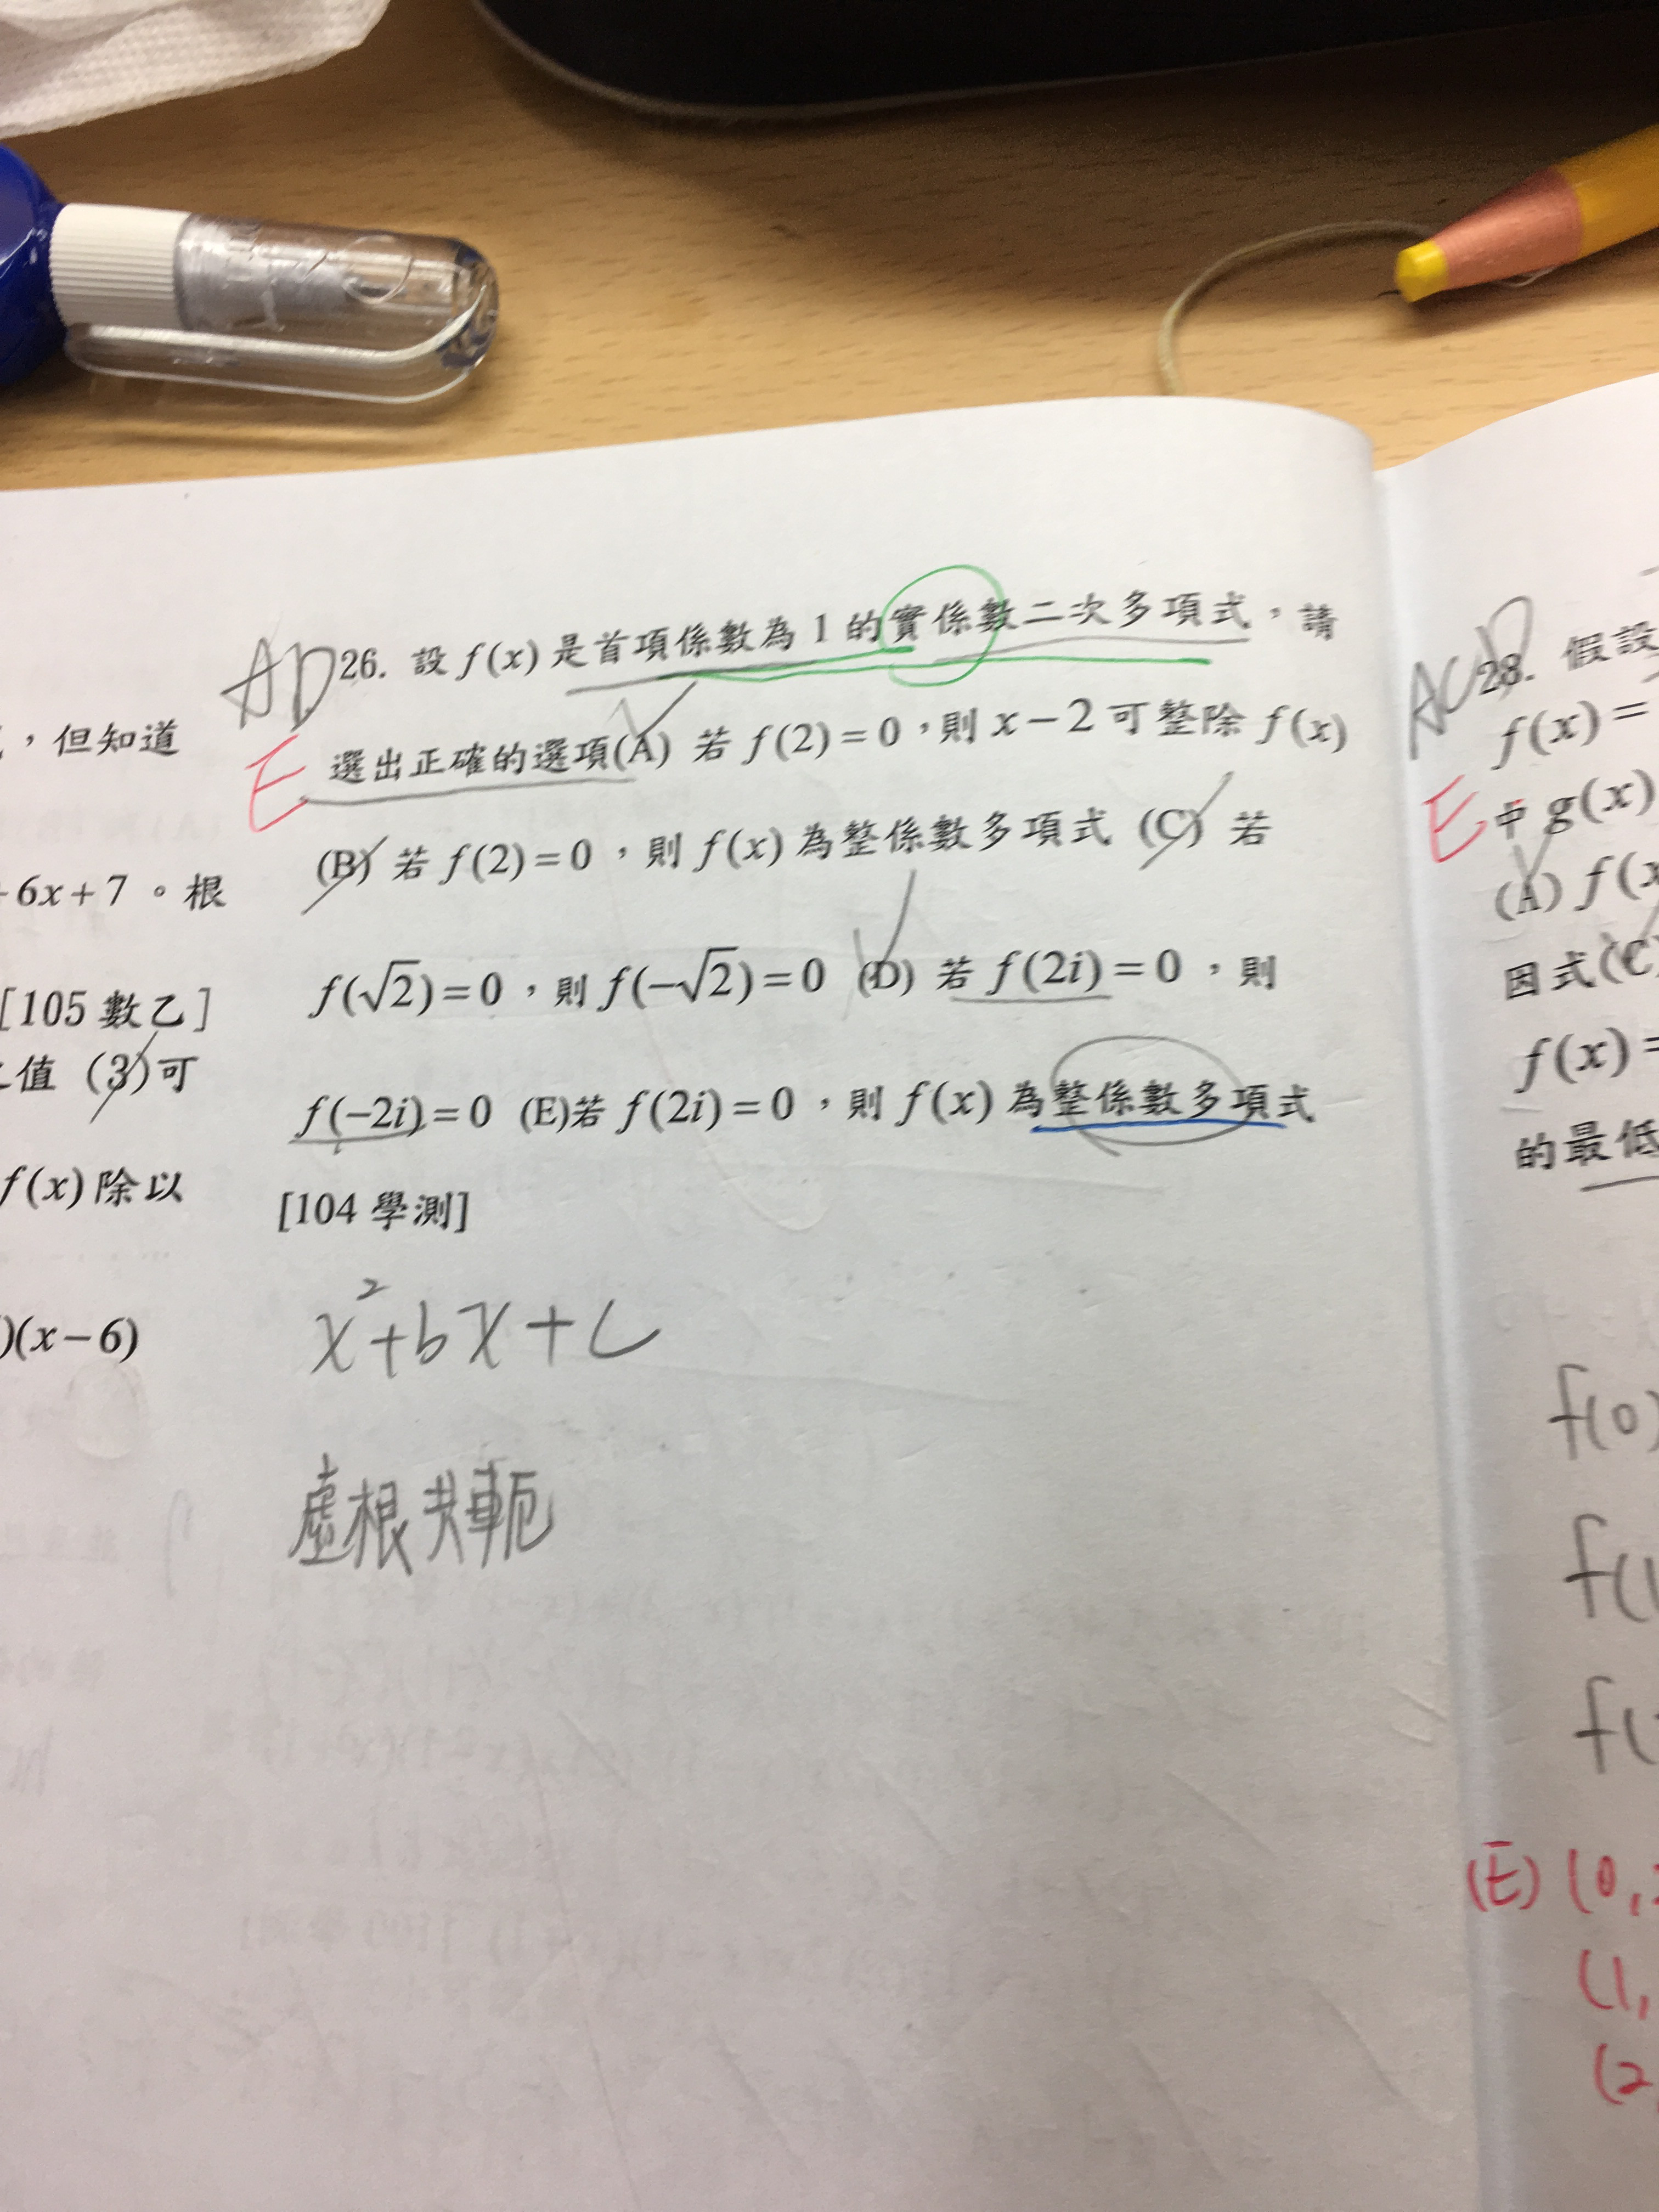 ，但知道
+6x+7。根
[105 數乙]
值 (3)可
f(x)除以
)(x−6)
AD
E
26. 設 f(x) 是首項係數為 1 的實係數二次多項式，請
選出正確的選項(A) 若 f(2)=0，則 x−2 可整除 f(x)
(B) 若 f(2)=0，則 f(x) 為整係數多項式 (C) 若
f(√2)=0，則 f(−√2)=0 (D) 若 f(2i)=0，則
f(−2i)=0 (E)若 f(2i)=0，則 f(x) 為整係數多項式
[104 學測]
x²+bx+c
虛根共軛
ACD
E
28. 假設
f(x)=
中 g(x)
(A) f(x
因式(C)
f(x)=
的最低
f(0)
f(1
f(
(E) (0,
(1,
(2